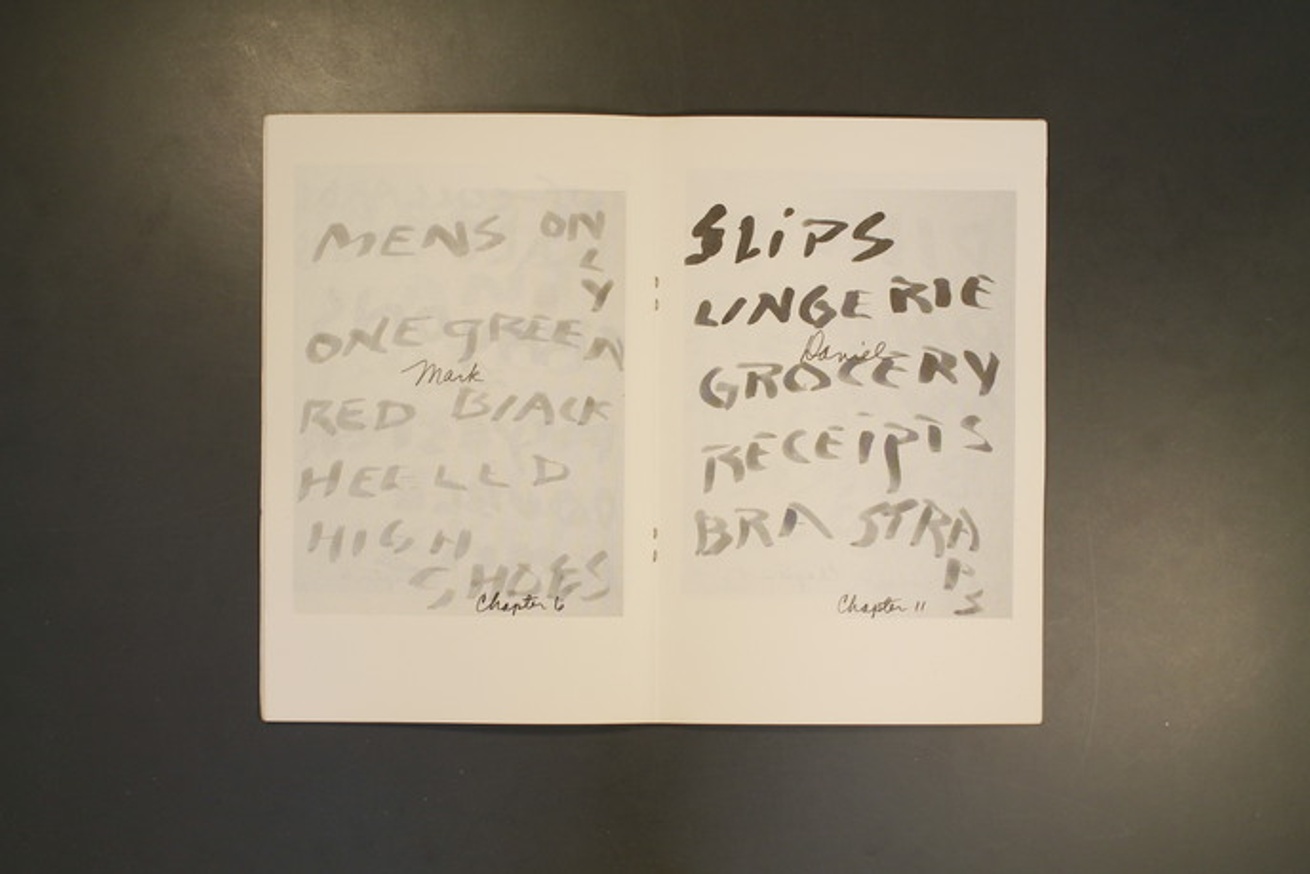 MENS ONLY
ONE GREEN
Mark
RED BlACK
HEELLD
HIGH
SHOES
Chapter 6
SLiPS
LINGERIE
Daniel
GROCERY
RECEiPTS
BRA STRAPS
Chapter 11